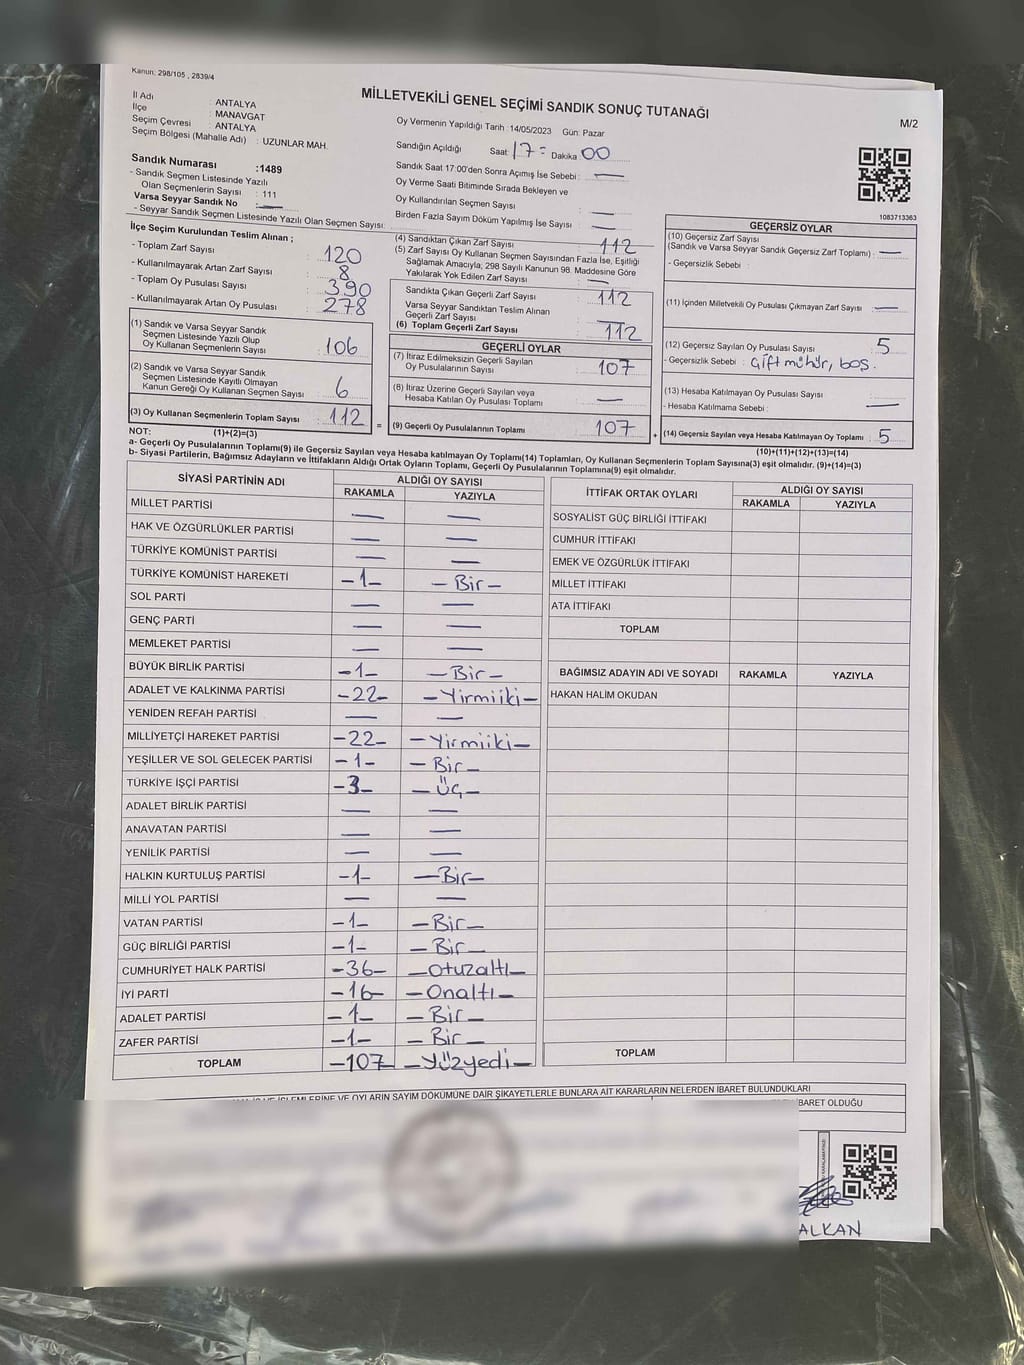 Kanun: 298/105 , 2839/4
MİLLETVEKİLİ GENEL SEÇİMİ SANDIK SONUÇ TUTANAĞI
M/2
İl Adı : ANTALYA
İlçe : MANAVGAT
Seçim Çevresi : ANTALYA
Seçim Bölgesi (Mahalle Adı) : UZUNLAR MAH.
Sandık Numarası :1489
- Sandık Seçmen Listesinde Yazılı
Olan Seçmenlerin Sayısı : 111
Varsa Seyyar Sandık No
- Seyyar Sandık Seçmen Listesinde Yazılı Olan Seçmen Sayısı:
Oy Vermenin Yapıldığı Tarih :14/05/2023 Gün: Pazar
Sandığın Açıldığı Saat: 17 Dakika 00
Sandık Saat 17:00'den Sonra Açılmış İse Sebebi : —
Oy Verme Saati Bitiminde Sırada Bekleyen ve
Oy Kullandırılan Seçmen Sayısı : —
Birden Fazla Sayım Döküm Yapılmış İse Sayısı : —
1083713363
İlçe Seçim Kurulundan Teslim Alınan ;
- Toplam Zarf Sayısı : 120
- Kullanılmayarak Artan Zarf Sayısı : 8
- Toplam Oy Pusulası Sayısı : 390
- Kullanılmayarak Artan Oy Pusulası : 278
(1) Sandık ve Varsa Seyyar Sandık
Seçmen Listesinde Yazılı Olup
Oy Kullanan Seçmenlerin Sayısı : 106
(2) Sandık ve Varsa Seyyar Sandık
Seçmen Listesinde Kayıtlı Olmayan
Kanun Gereği Oy Kullanan Seçmen Sayısı : 6
(3) Oy Kullanan Seçmenlerin Toplam Sayısı : 112
(4) Sandıktan Çıkan Zarf Sayısı : 112
(5) Zarf Sayısı Oy Kullanan Seçmen Sayısından Fazla İse, Eşitliği
Sağlamak Amacıyla, 298 Sayılı Kanunun 98. Maddesine Göre
Yakılarak Yok Edilen Zarf Sayısı : —
Sandıkta Çıkan Geçerli Zarf Sayısı : 112
Varsa Seyyar Sandıktan Teslim Alınan
Geçerli Zarf Sayısı : —
(6) Toplam Geçerli Zarf Sayısı : 112
GEÇERLİ OYLAR
(7) İtiraz Edilmeksizin Geçerli Sayılan
Oy Pusulalarının Sayısı : 107
(8) İtiraz Üzerine Geçerli Sayılan veya
Hesaba Katılan Oy Pusulası Toplamı : —
= (9) Geçerli Oy Pusulalarının Toplamı : 107 +
GEÇERSİZ OYLAR
(10) Geçersiz Zarf Sayısı
(Sandık ve Varsa Seyyar Sandık Geçersiz Zarf Toplamı) : —
- Geçersizlik Sebebi :
(11) İçinden Milletvekili Oy Pusulası Çıkmayan Zarf Sayısı : —
(12) Geçersiz Sayılan Oy Pusulası Sayısı : 5
- Geçersizlik Sebebi : Çift mühür, boş.
(13) Hesaba Katılmayan Oy Pusulası Sayısı : —
- Hesaba Katılmama Sebebi :
(14) Geçersiz Sayılan veya Hesaba Katılmayan Oy Toplamı : 5
NOT: (1)+(2)=(3)
(10)+(11)+(12)+(13)=(14)
a- Geçerli Oy Pusulalarının Toplamı(9) ile Geçersiz Sayılan veya Hesaba katılmayan Oy Toplamı(14) Toplamları, Oy Kullanan Seçmenlerin Toplam Sayısına(3) eşit olmalıdır. (9)+(14)=(3)
b- Siyasi Partilerin, Bağımsız Adayların ve İttifakların Aldığı Ortak Oyların Toplamı, Geçerli Oy Pusulalarının Toplamına(9) eşit olmalıdır.
SİYASİ PARTİNİN ADI ALDIĞI OY SAYISI
RAKAMLA YAZIYLA
MİLLET PARTİSİ — —
HAK VE ÖZGÜRLÜKLER PARTİSİ — —
TÜRKİYE KOMÜNİST PARTİSİ — —
TÜRKİYE KOMÜNİST HAREKETİ -1- - Bir -
SOL PARTİ — —
GENÇ PARTİ — —
MEMLEKET PARTİSİ — —
BÜYÜK BİRLİK PARTİSİ -1- - Bir -
ADALET VE KALKINMA PARTİSİ -22- - Yirmiiki -
YENİDEN REFAH PARTİSİ — —
MİLLİYETÇİ HAREKET PARTİSİ -22- - Yirmiiki -
YEŞİLLER VE SOL GELECEK PARTİSİ -1- - Bir -
TÜRKİYE İŞÇİ PARTİSİ -3- - Üç -
ADALET BİRLİK PARTİSİ — —
ANAVATAN PARTİSİ — —
YENİLİK PARTİSİ — —
HALKIN KURTULUŞ PARTİSİ -1- - Bir -
MİLLİ YOL PARTİSİ — —
VATAN PARTİSİ -1- - Bir -
GÜÇ BİRLİĞİ PARTİSİ -1- - Bir -
CUMHURİYET HALK PARTİSİ -36- - Otuzaltı -
İYİ PARTİ -16- - Onaltı -
ADALET PARTİSİ -1- - Bir -
ZAFER PARTİSİ -1- - Bir -
TOPLAM -107- - Yüzyedi -
İTTİFAK ORTAK OYLARI ALDIĞI OY SAYISI
RAKAMLA YAZIYLA
SOSYALİST GÜÇ BİRLİĞİ İTTİFAKI
CUMHUR İTTİFAKI
EMEK VE ÖZGÜRLÜK İTTİFAKI
MİLLET İTTİFAKI
ATA İTTİFAKI
TOPLAM
BAĞIMSIZ ADAYIN ADI VE SOYADI RAKAMLA YAZIYLA
HAKAN HALİM OKUDAN
TOPLAM
İŞLEMLERİNE VE OYLARIN SAYIM DÖKÜMÜNE DAİR ŞİKAYETLERLE BUNLARA AİT KARARLARIN NELERDEN İBARET BULUNDUKLARI
İBARET OLDUĞU
ALKAN